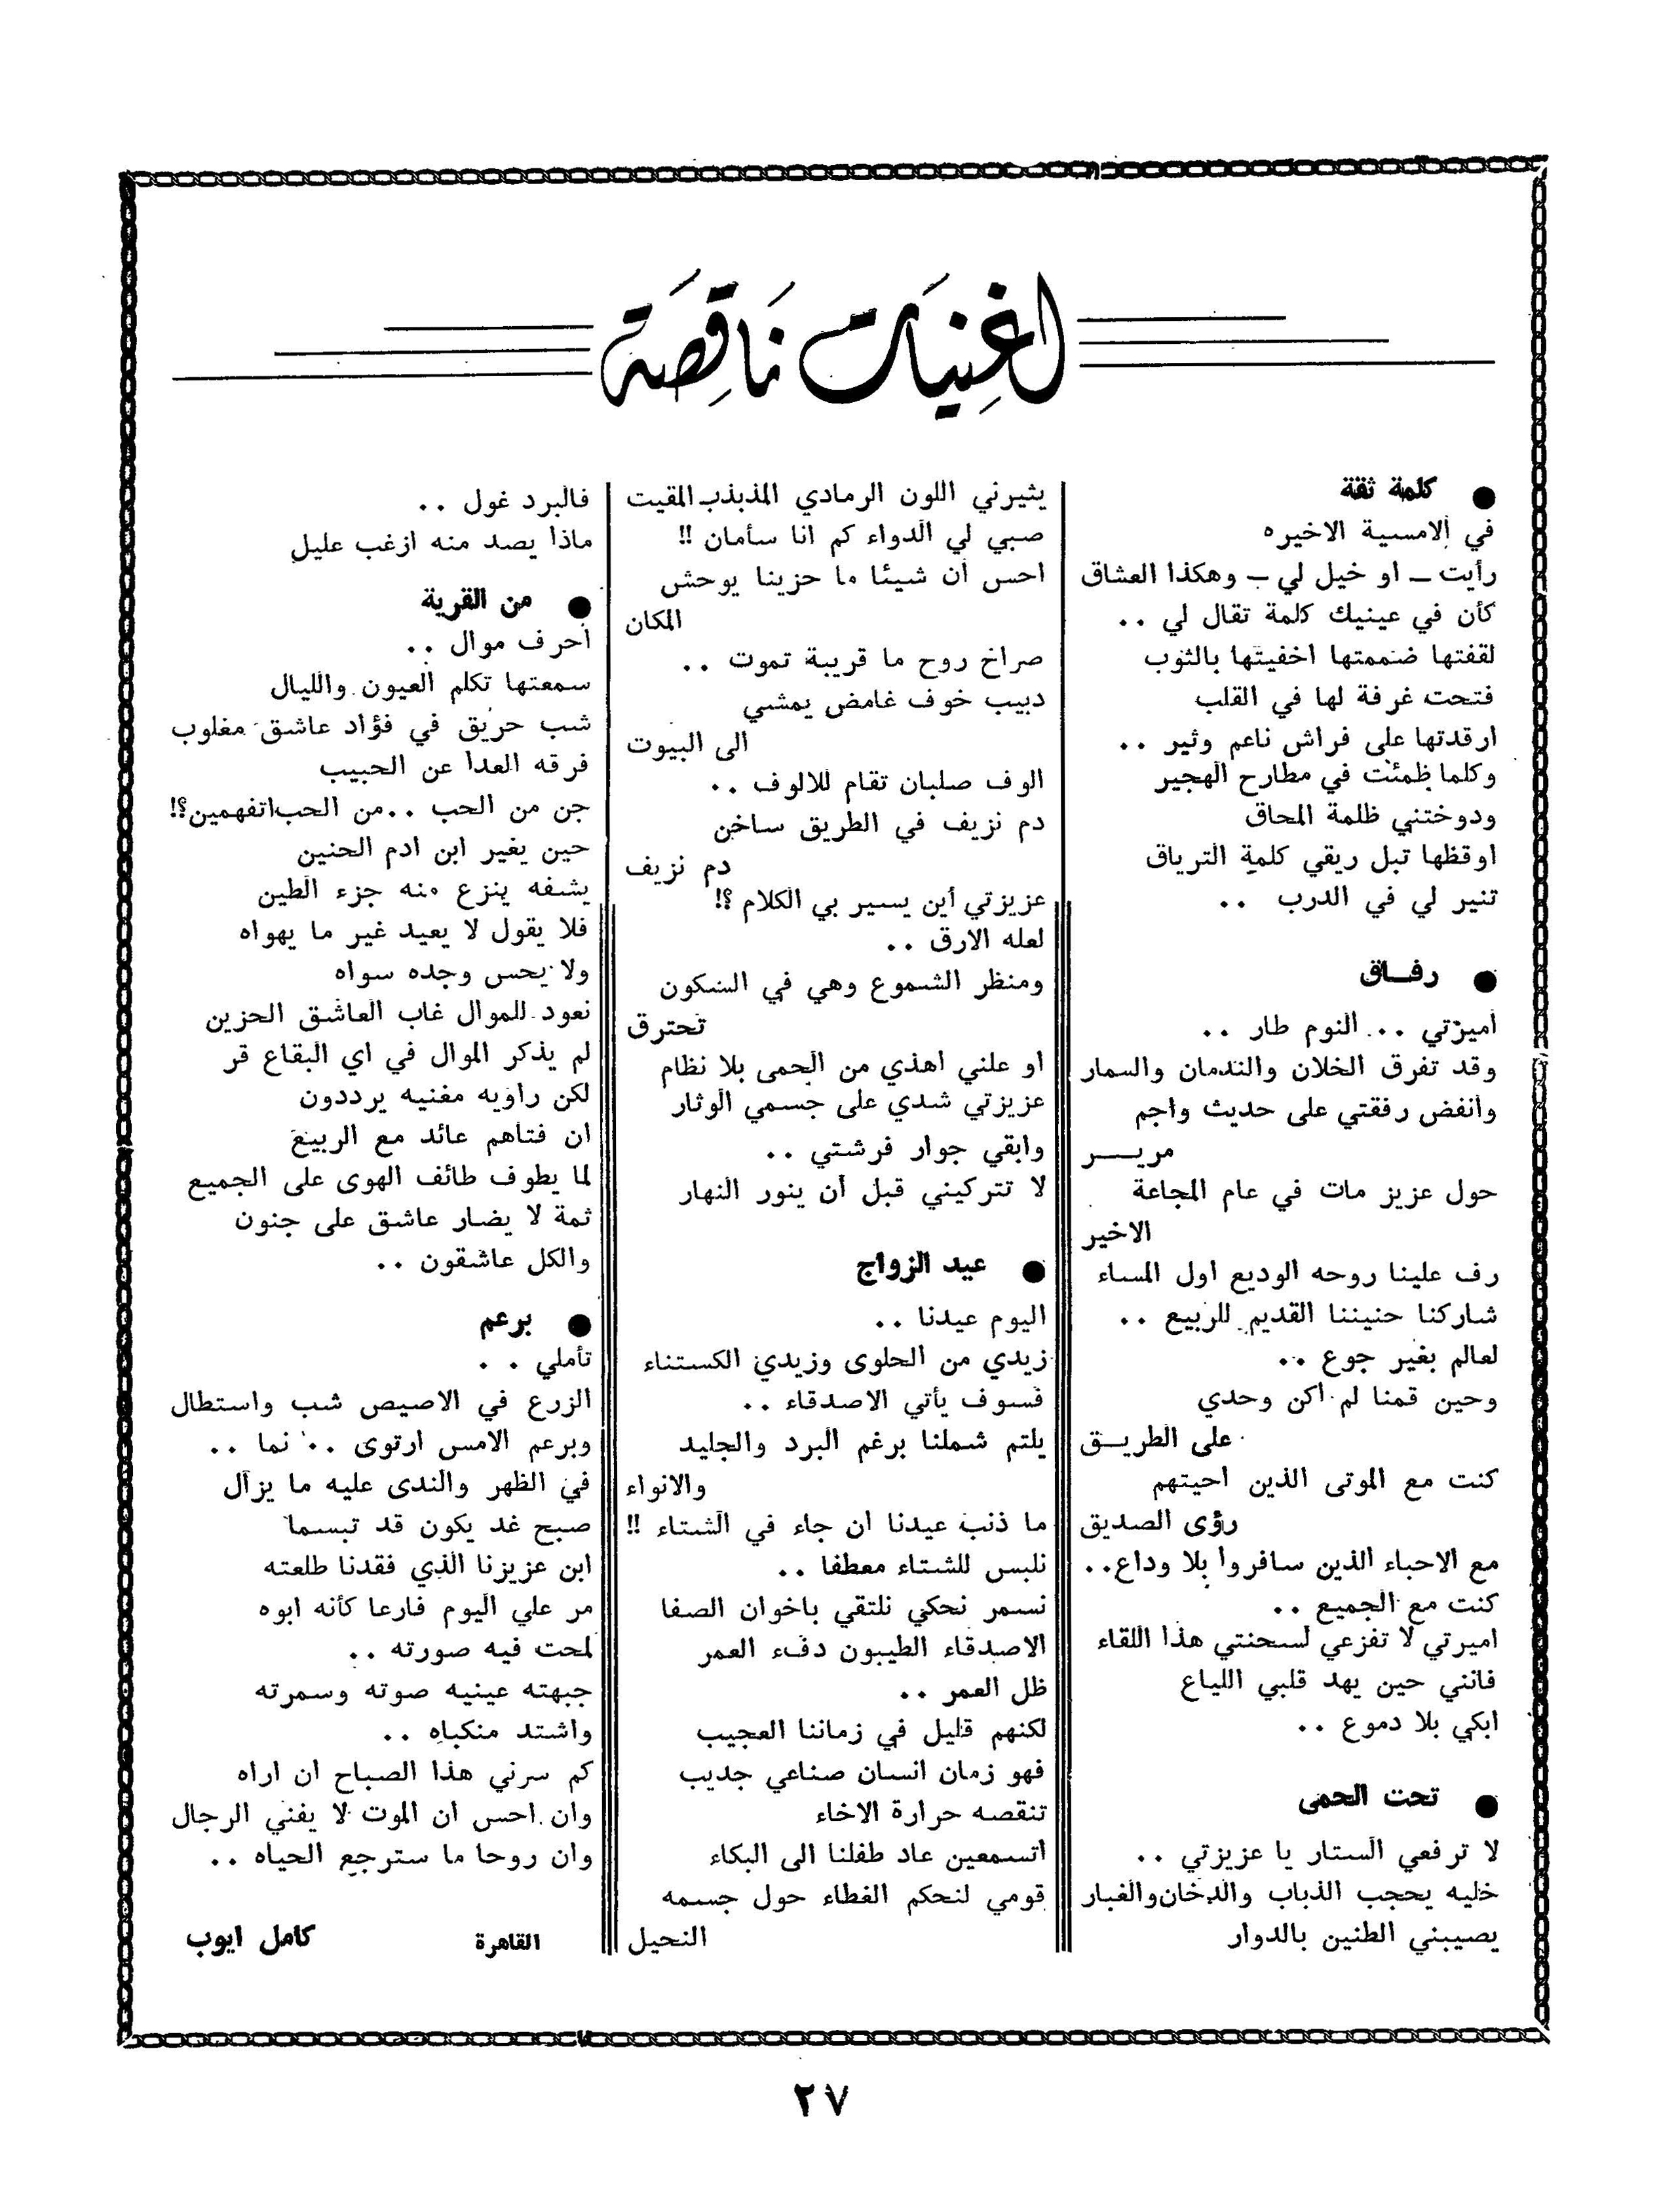 اغنيات ناقصة
● كلمة ثقة
في الامسية الاخيره
رأيت ـ او خيل لي ـ وهكذا العشاق
كأن في عينيك كلمة تقال لي ..
لقفتها ضممتها اخفيتها بالثوب
فتحت غرفة لها في القلب
ارقدتها على فراش ناعم وثير ..
وكلما ظمئت في مطارح الهجير
ودوختني ظلمة المحاق
اوقظها تبل ريقي كلمة الترياق
تنير لي في الدرب ..
● رفــاق
أميرتي .. النوم طار ..
وقد تفرق الخلان والندمان والسمار
وانفض رفقتي على حديث واجم
مريـــر
حول عزيز مات في عام المجاعة
الاخير
رف علينا روحه الوديع اول المساء
شاركنا حنيننا القديم للربيع ..
لعالم بغير جوع ..
وحين قمنا لم اكن وحدي
على الطريــق
كنت مع الموتى الذين احيتهم
رؤى الصديق
مع الاحباء الذين سافروا بلا وداع..
كنت مع الجميع ..
اميرتي لا تفزعي لسحنتي هذا اللقاء
فانني حين يهد قلبي اللياع
ابكي بلا دموع ..
● تحت الحمى
لا ترفعي الستار يا عزيزتي ..
خليه يحجب الذباب والدخان والغبار
يصيبني الطنين بالدوار
يثيرني اللون الرمادي المذبذب المقيت
صبي لي الدواء كم انا سأمان !!
احس أن شيئا ما حزينا يوحش
المكان
صراخ روح ما قريبة تموت ..
دبيب خوف غامض يمشي
الى البيوت
الوف صلبان تقام للالوف ..
دم نزيف في الطريق ساخن
دم نزيف
عزيزتي أين يسير بي الكلام ؟!
لعله الارق ..
ومنظر الشموع وهي في السكون
تحترق
او علني اهذي من الحمى بلا نظام
عزيزتي شدي على جسمي الوثار
وابقي جوار فرشتي ..
لا تتركيني قبل أن ينور النهار
● عيد الزواج
اليوم عيدنا ..
زيدي من الحلوى وزيدي الكستناء
فسوف يأتي الاصدقاء ..
يلتم شملنا برغم البرد والجليد
والانواء
ما ذنب عيدنا ان جاء في الشتاء !!
نلبس للشتاء معطفا ..
نسمر نحكي نلتقي باخوان الصفا
الاصدقاء الطيبون دفء العمر
ظل العمر ..
لكنهم قليل في زماننا العجيب
فهو زمان انسان صناعي جديب
تنقصه حرارة الاخاء
أتسمعين عاد طفلنا الى البكاء
قومي لنحكم الغطاء حول جسمه
النحيل
فالبرد غول ..
ماذا يصد منه ازغب عليل
● من القرية
أحرف موال ..
سمعتها تكلم العيون والليال
شب حريق في فؤاد عاشق مغلوب
فرقه العدا عن الحبيب
جن من الحب ..من الحب اتفهمين؟!
حين يغير ابن ادم الحنين
يشفه ينزع منه جزء الطين
فلا يقول لا يعيد غير ما يهواه
ولا يحس وجده سواه
نعود للموال غاب العاشق الحزين
لم يذكر الموال في اي البقاع قر
لكن راويه مغنيه يرددون
ان فتاهم عائد مع الربيع
لما يطوف طائف الهوى على الجميع
ثمة لا يضار عاشق على جنون
والكل عاشقون ..
● برعم
تأملي ..
الزرع في الاصيص شب واستطال
وبرعم الامس ارتوى .. نما ..
في الظهر والندى عليه ما يزال
صبح غد يكون قد تبسما
ابن عزيزنا الذي فقدنا طلعته
مر علي اليوم فارعا كأنه ابوه
لمحت فيه صورته ..
جبهته عينيه صوته وسمرته
واشتد منكباه ..
كم سرني هذا الصباح ان اراه
وان احس ان الموت لا يفني الرجال
وان روحا ما سترجع الحياه ..
القاهرة كامل ايوب
٢٧